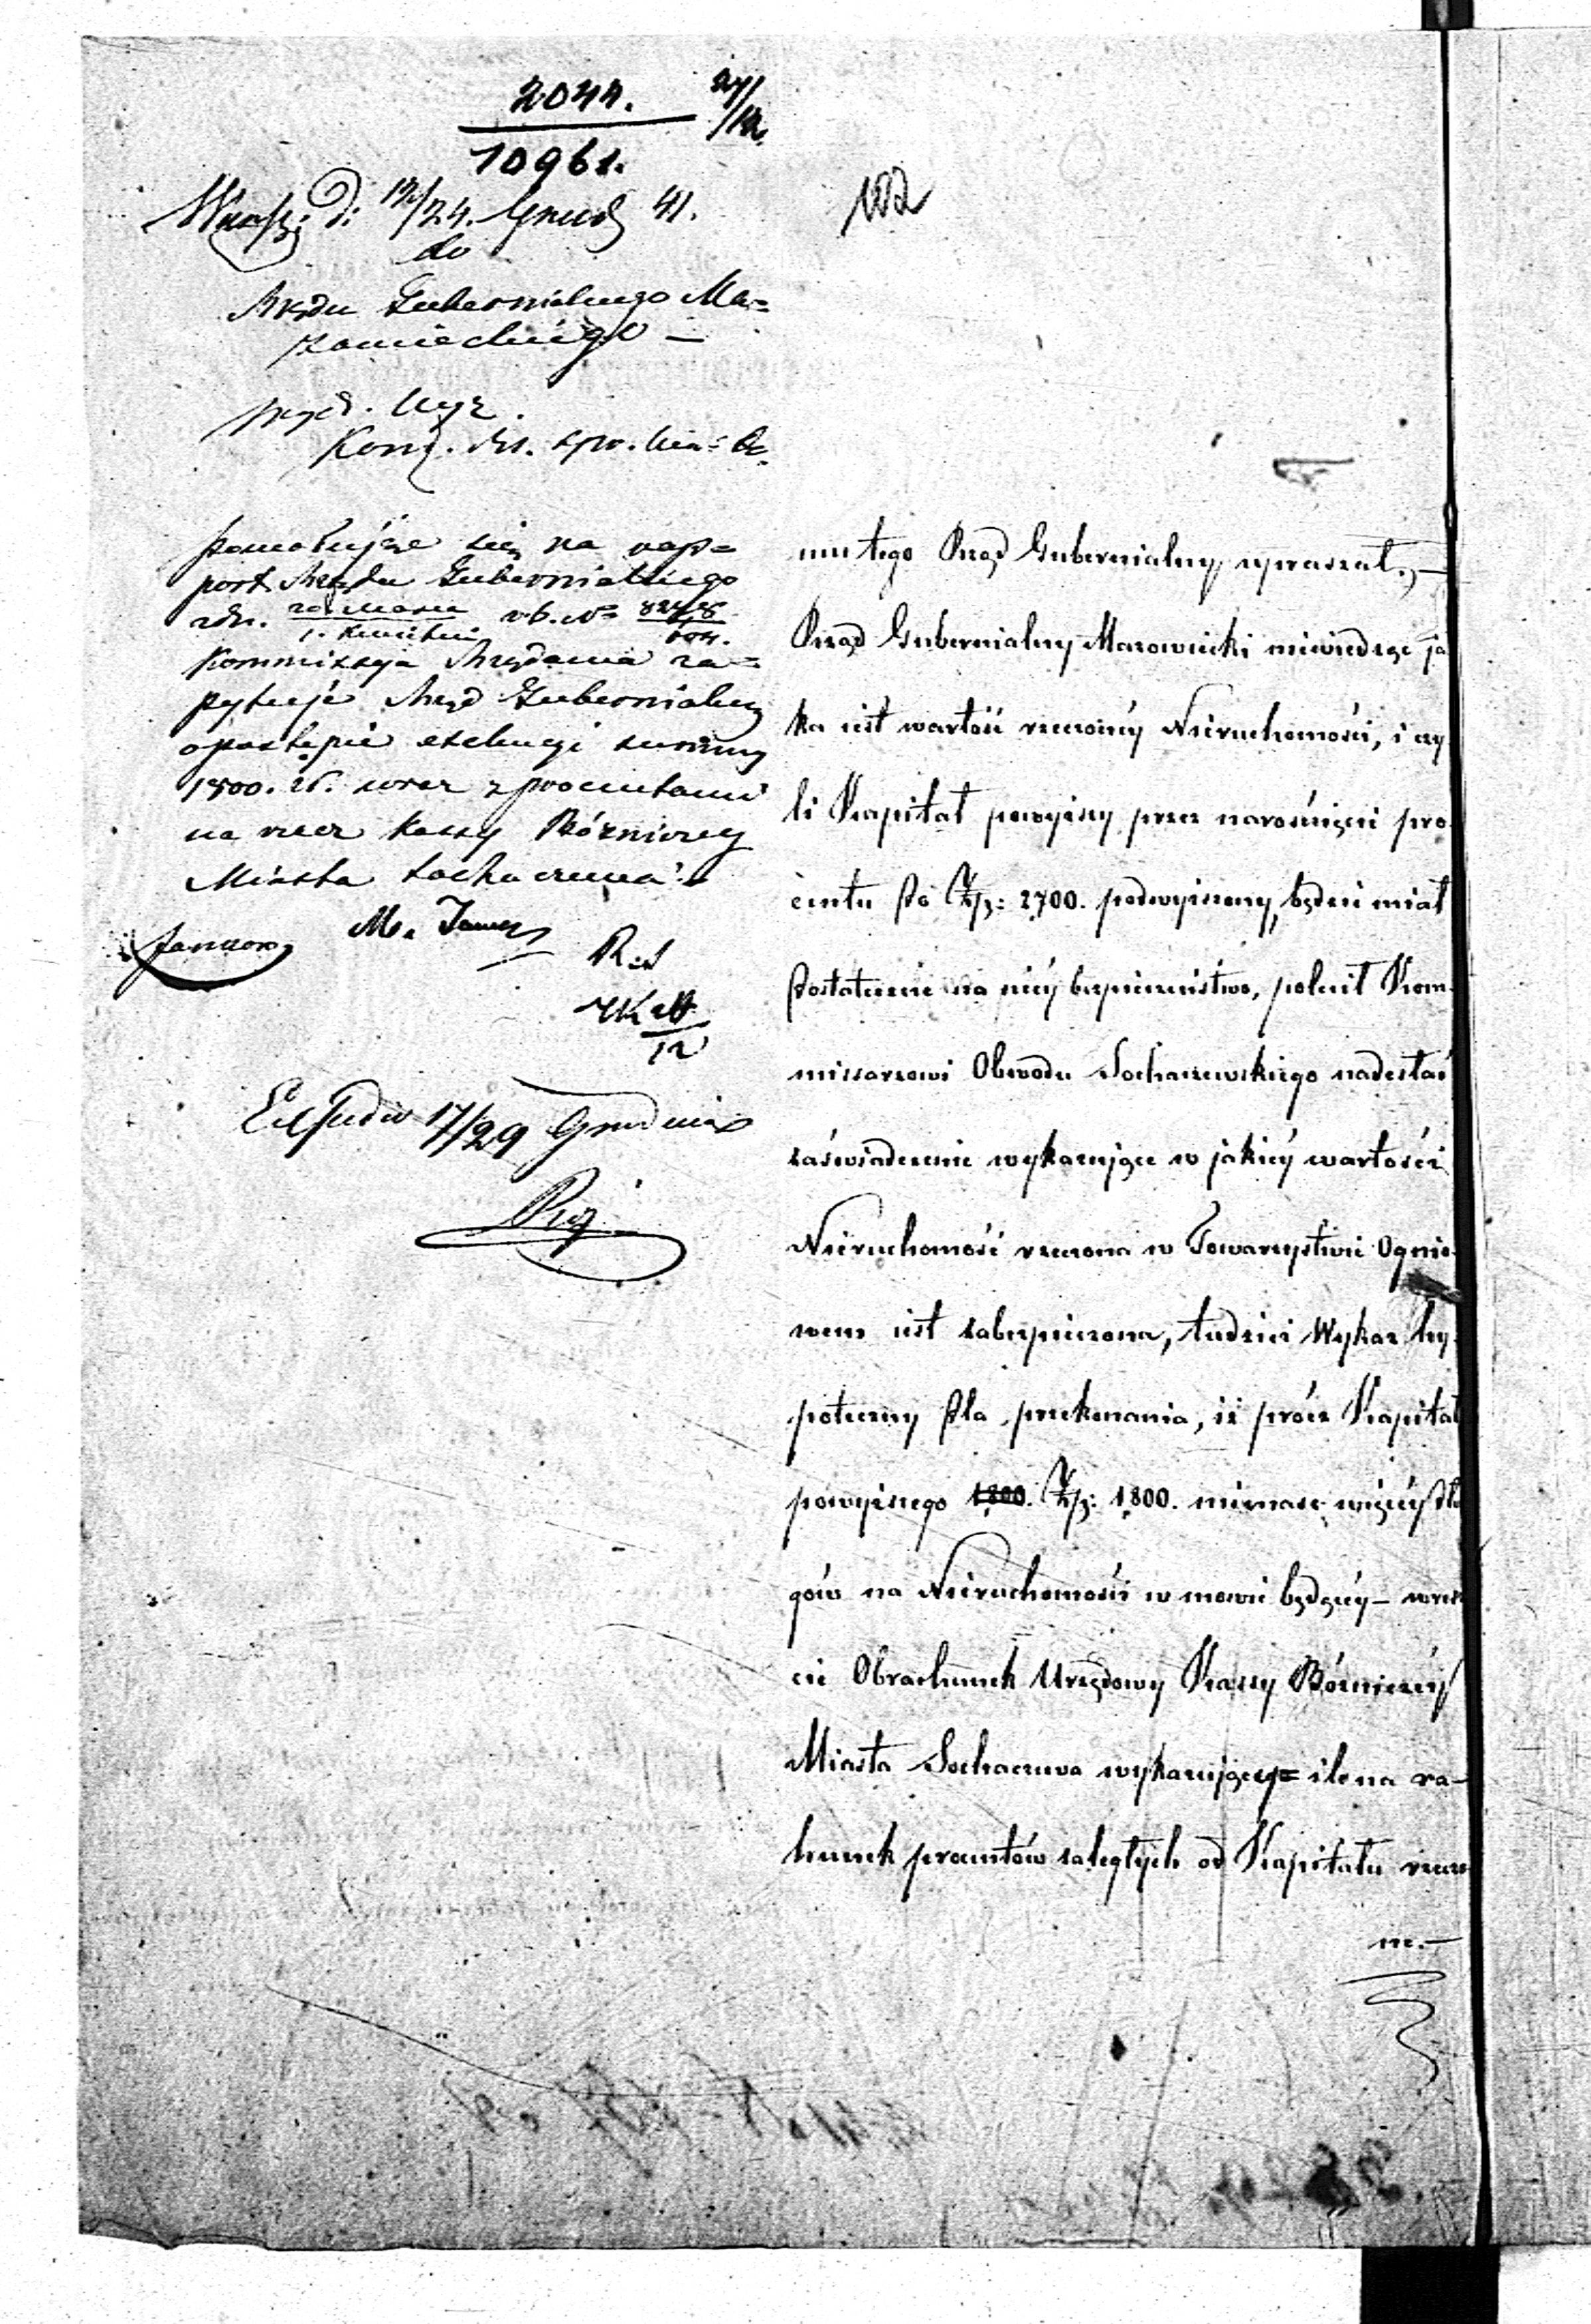 2044.
10961.
27/12.
Warsz: d: 12/24. Grud 41.
do
Rządu Gubernialnego Ma=
zowieckiego —
102
przed. Wyz.
Kom. Rz. spr. We= &
Powołując się na rap=
port Rządu Gubernialnego
zdn. 20 Marca / 1. Kwietnia r.b. No
Kommissya Rządowa za=
pytuje Rząd Gubernialny
o postępie exekucyi summy
1800. zł. wraz z procentami
na rzecz kassy Bóżniczey
Miasta Sochaczewa.
M.
R.S
12
Expedw 17/29 Grudnia
mu tego Rząd Gubernialny wyraszał. —
Rząd Gubernialny Mazowiecki niewiedząc ja
ka iest wartość rzeczonéy Nieruchomości, i czy
li Kapitał powyższy przez narośnięcie pro
centu do Złp: 2700. podwyższony, będzie miał
dostateczne na niéy bezpieczeństwo, polecił Kom
missarzowi Obwodu Sochaczewskiego nadesłać
zaświadczenie wykazujące w jakiéy wartości
Nieruchomość rzeczona w Towarzystwie Ognio
wem iest zabezpieczona, tudzież Wykaz hy
poteczny dla przekonania, iż prócz Kapitał
powyższego 1800. Złp: 1800. niemasz więcéy dłu
gów na Nieruchomości w mowie będącéy — wresz
cie Obrachunek Urzędowy Kassy Bóżniczéy
Miasta Sochaczewa wykazujący= ile na ra—
hunek procentów zaległych od Kapitału rzeczo
ne. —